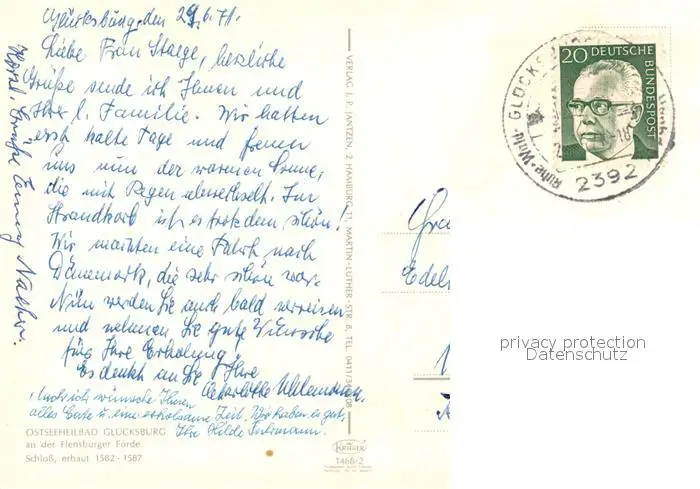 Glücksburg, den 29.6.71.
Liebe Frau Staege, herzliche
Grüße sende ich Ihnen und
Ihrer l. Familie. Wir hatten
erst kalte Tage und freuen
uns nun der warmen Sonne,
die mit Regen abwechselt. Im
Strandkorb ist es trotzdem schön!
Wir machten eine Fahrt nach
Dänemark, die sehr schön war.
Nun werden Sie auch bald verreisen
und nehmen Sie gute Wünsche
für Ihre Erholung
Es denkt an Sie Ihre
Charlotte
Auch ich wünsche Ihnen
alles Gute u. eine erholsame Zeit. Wir haben es gut,
Ihre Hilde
Herzl. Grüße
OSTSEEHEILBAD GLÜCKSBURG
an der Flensburger Förde
Schloß, erbaut 1582-1587
VERLAG J. P. JANTZEN, 2 HAMBURG 11, MARTIN-LUTHER-STR. 8, TEL. 0411/
KRÜGER
1468/2
20 DEUTSCHE
BUNDESPOST
GLÜCKSBURG
Ruhe · Wald ·
2392
Edel
privacy protection
Datenschutz